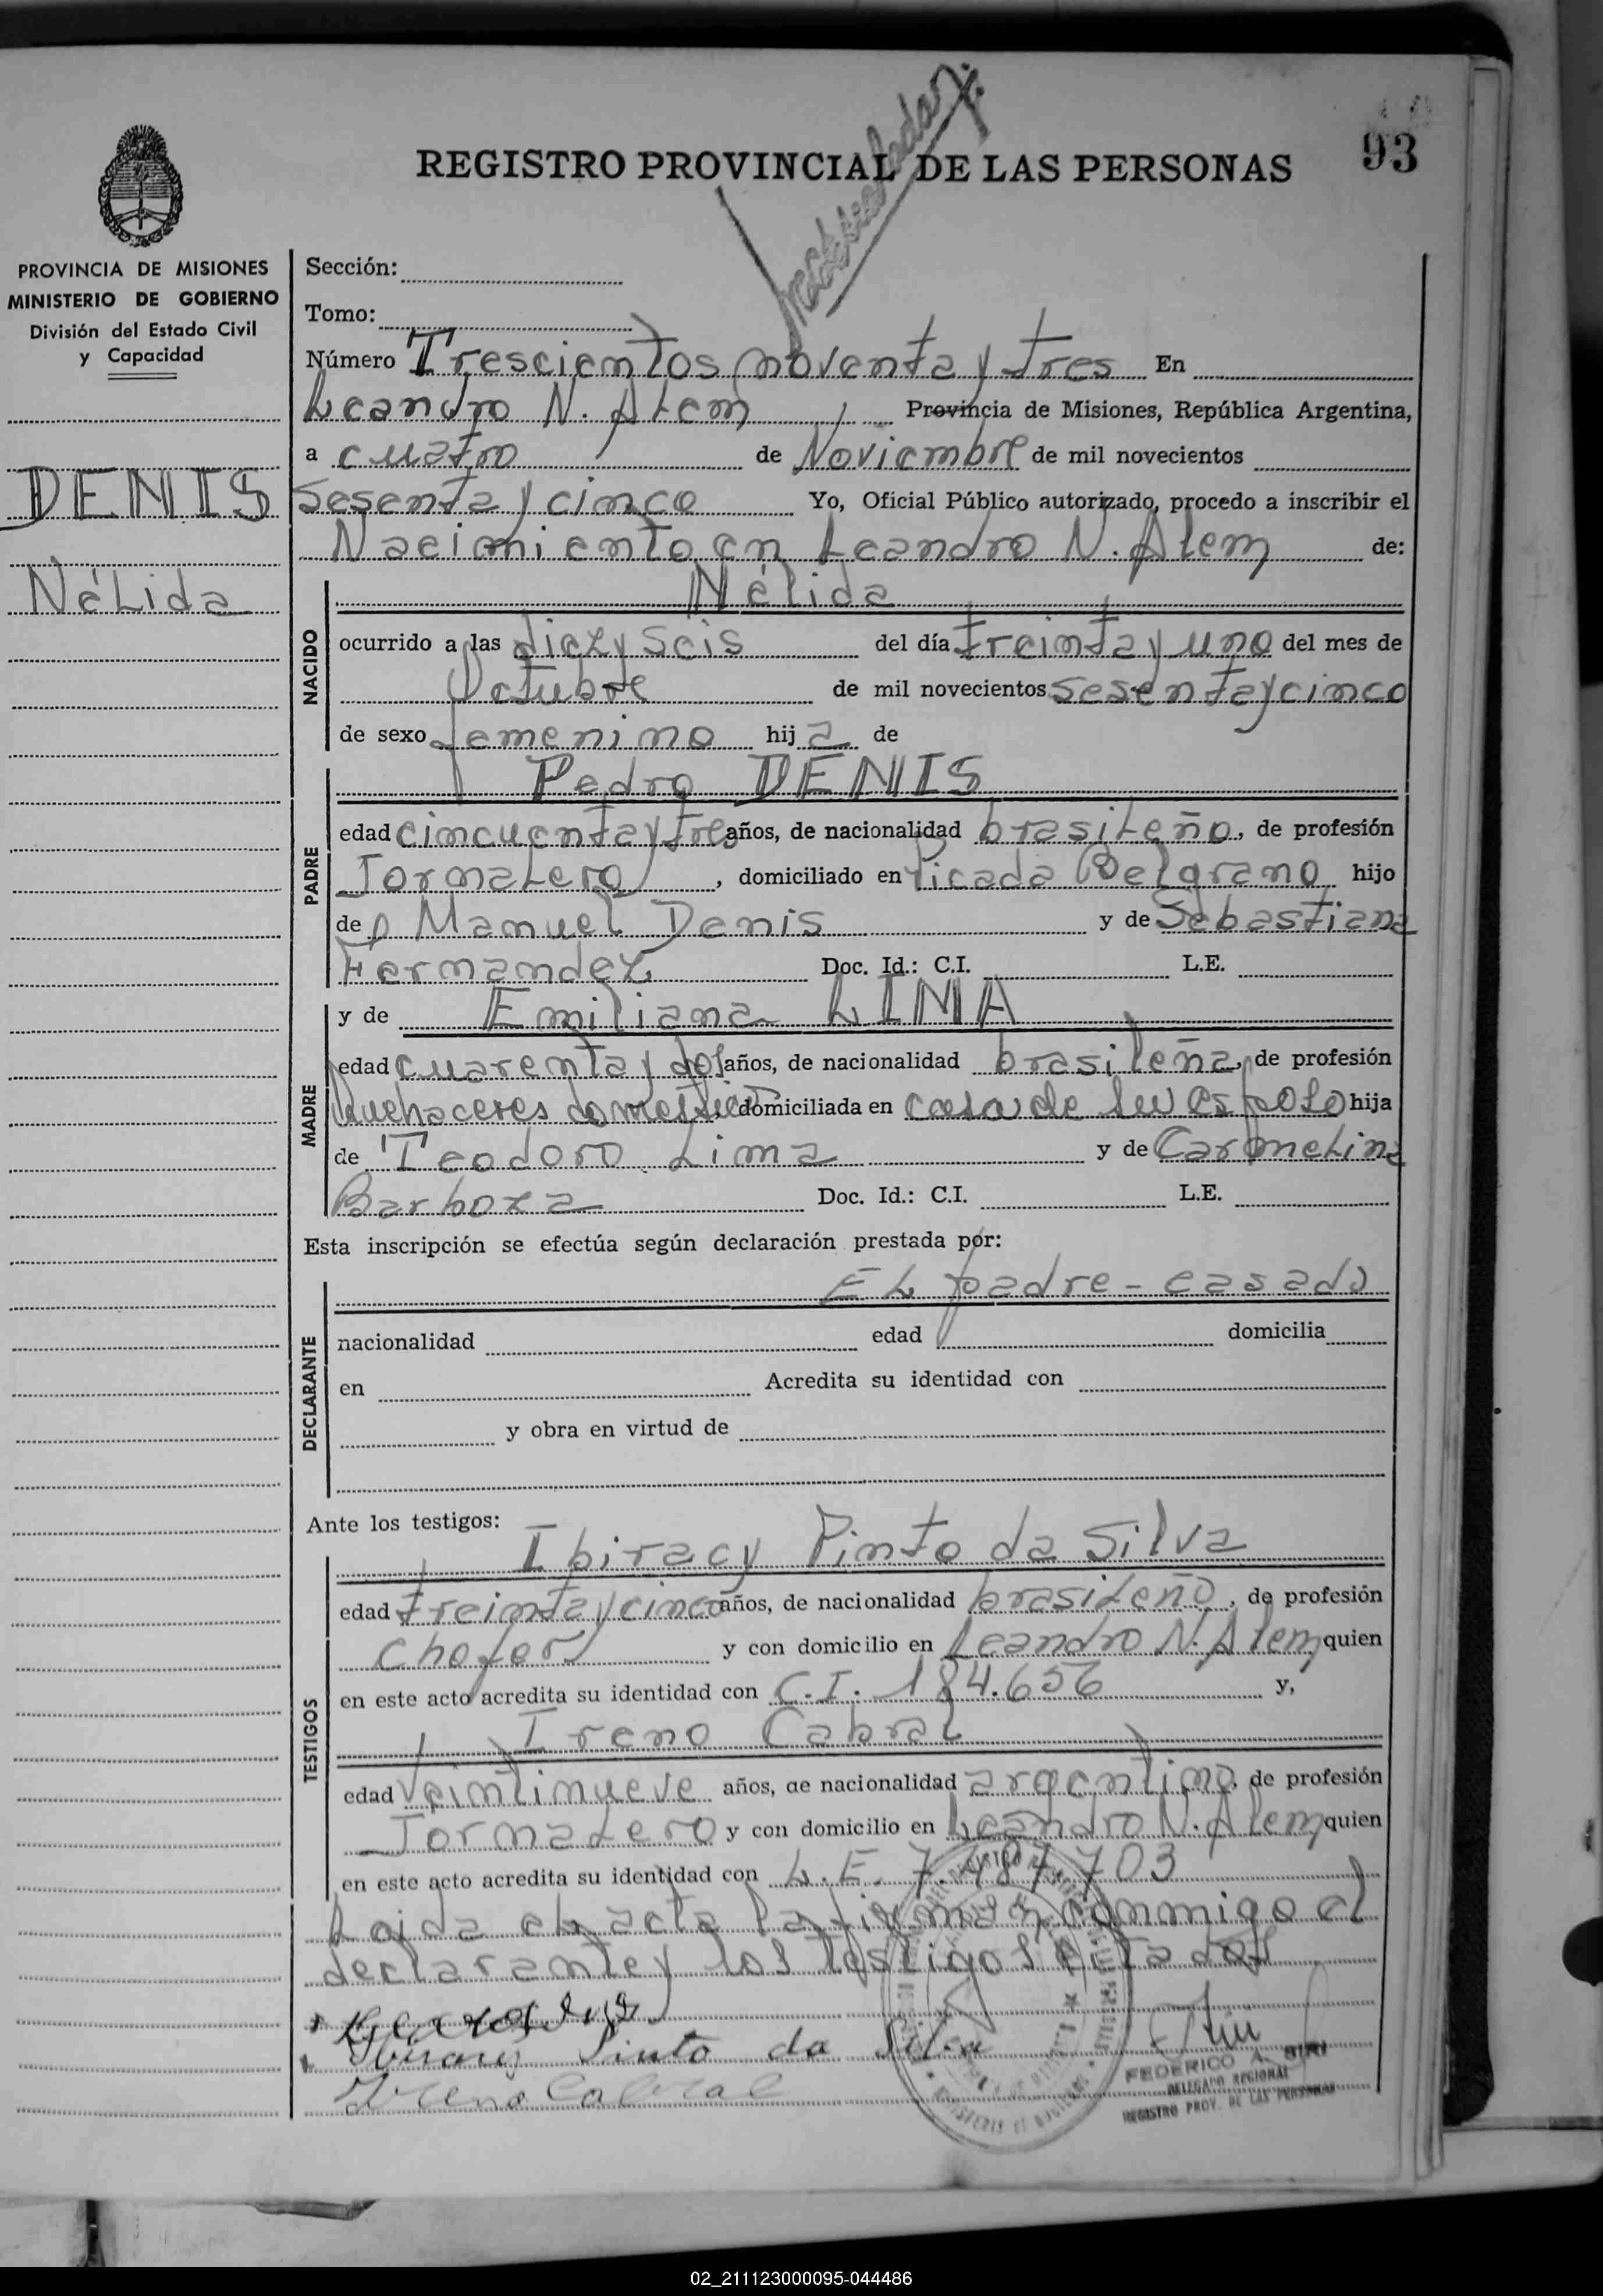 93
REGISTRO PROVINCIAL DE LAS PERSONAS
PROVINCIA DE MISIONES
MINISTERIO DE GOBIERNO
División del Estado Civil
y Capacidad
DENIS
Nélida
Sección:
Tomo:
Número Trescientos noventa y tres En
Leandro N. Alem Provincia de Misiones, República Argentina,
a cuatro de Noviembre de mil novecientos
sesenta y cinco Yo, Oficial Público autorizado, procedo a inscribir el
Nacimiento en Leandro N. Alem de:
NACIDO
Nélida
ocurrido a las diez y seis del día treinta y uno del mes de
Octubre de mil novecientos sesenta y cinco
de sexo femenino hija de
PADRE
Pedro DENIS
edad cincuenta y tres años, de nacionalidad brasileño, de profesión
Jornalero, domiciliado en Picada Belgrano hijo
de Manuel Denis y de Sebastiana
Fernandez Doc. Id.: C.I. L.E.
MADRE
y de Emiliana LIMA
edad cuarenta y dos años, de nacionalidad brasileña, de profesión
Quehaceres domésticos, domiciliada en casa de su esposo hija
de Teodoro Lima y de Carmelina
Barboza Doc. Id.: C.I. L.E.
Esta inscripción se efectúa según declaración prestada por:
DECLARANTE
El padre - casado
nacionalidad edad domicilia
en Acredita su identidad con
y obra en virtud de
Ante los testigos:
TESTIGOS
Ibiracy Pinto da Silva
edad treinta y cinco años, de nacionalidad brasileño, de profesión
Chofer y con domicilio en Leandro N. Alem quien
en este acto acredita su identidad con C.I. 184.656 y,
Ireno Cabral
edad veintinueve años, de nacionalidad argentino, de profesión
Jornalero y con domicilio en Leandro N. Alem quien
en este acto acredita su identidad con L.E. 7.487.703
Leida el acta la firman conmigo el
declarante y los testigos citados
Ibiracy Pinto da Silva
Ireno Cabral
FEDERICO A. SIRI
DELEGADO REGIONAL
REGISTRO PROV. DE LAS PERSONAS
02_211123000095-044486